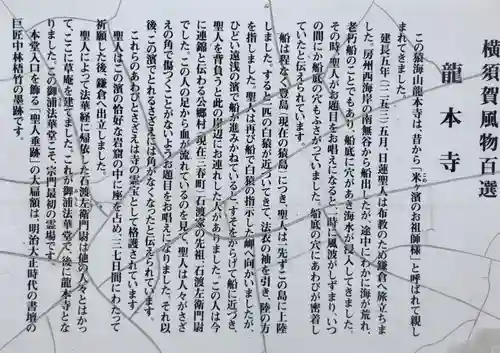 横須賀風物百選
龍本寺
この猿海山龍本寺は、昔から「米ヶ濱のお祖師様」と呼ばれて親し
まれてきました。
建長五年（一二五三）五月、日蓮聖人は布教のため鎌倉へ旅立ちま
した。房州西海岸の南無谷から船出したが、途中にわかに海が荒れ、
老朽船のことでもあり、船底に穴があき海水が浸入してきました。
その時、聖人がお題目をお唱えになると、一時に風波がしずまり、いつ
の間にか船底の穴もふさがっていました。船底の穴にあわびが密着し
ていたと伝えられています。
船は程なく豊島（現在の猿島）につき、聖人は一先ずこの島に上陸
しました。すると一匹の白猿が近づいてきて、法衣の袖を引き、陸の方
を指しました。聖人は再び船で白猿の指示した岬へ向かいましたが、
ひどい遠浅の濱で、船が進みかねていると、すそをからげて船に近づき、
聖人を背負うと此の岸辺にお連れした人がありました。この人は今
に連綿と伝わる公郷村（現在三春町）石渡家の先祖、石渡左衛門尉
でした。この人の足から血が流れているのを見て、聖人は人々がさざ
えの角で傷つくことがないようお題目をお唱えになりました。それ以
後、この濱でとれるさざえには角がなくなったと伝えられています。
これらのあわびとさざえは当寺の霊宝として格護されています。
聖人はこの濱の恰好な岩窟の中に座を占め、三七日間にわたって
祈願した後、鎌倉へ出立しました。
聖人によって法華経に帰依した石渡左衛門尉は他の人々とはかっ
てここに草庵を建てました。これが御浦法華堂で、後に龍本寺とな
りました。この御浦法華堂こそ、宗門最初の霊場です。
本堂入口を飾る「聖人垂跡」の大扁額は、明治大正時代の書壇の
巨匠中林梧竹の墨跡です。